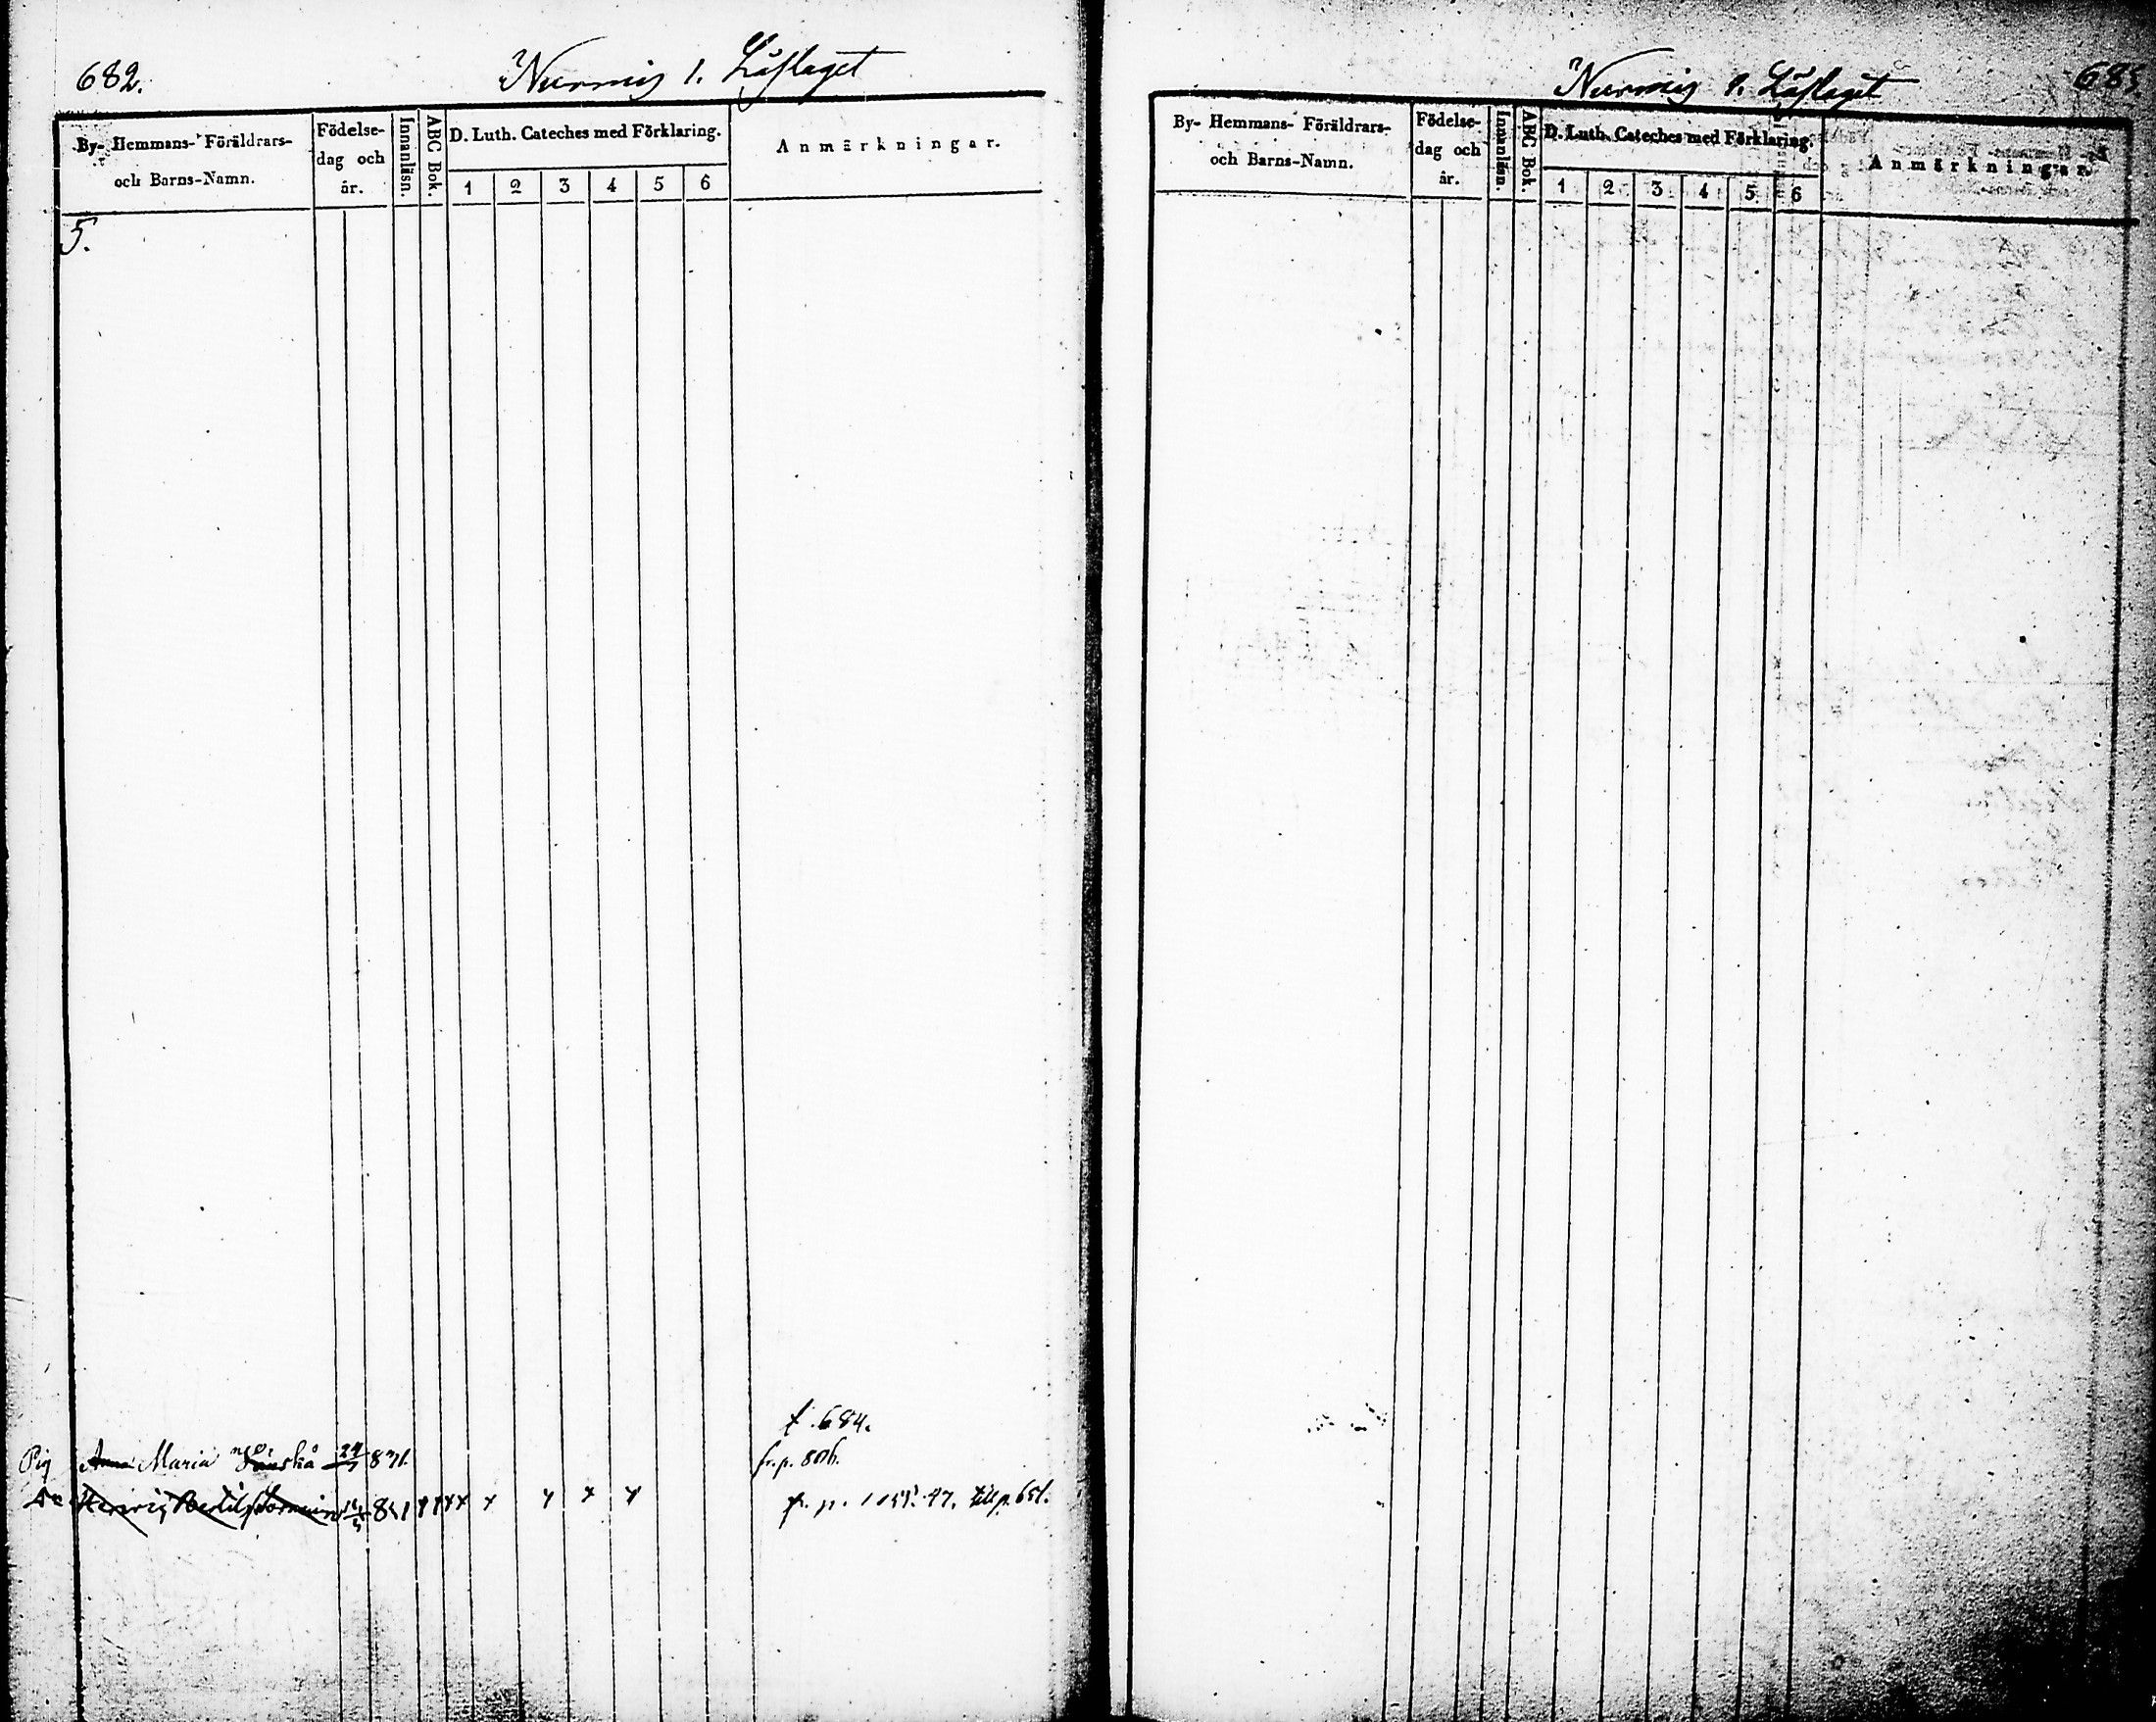 682.
Nurmis 1. Läslaget
By- Hemmans- Föräldrars- och Barns-Namn.
Födelse- dag och år.
Innanläsn.
ABC Bok.
D. Luth. Cateches med Förklaring.
1 2 3 4 5 6
Anmärkningar.
5.
t. 684.
Pig Anna Maria 24 831. fr. p.
851 x x x x x fr. p. 47. till p. 651.
Nurmis 1. Läslaget
683
By- Hemmans- Föräldrars- och Barns-Namn.
Födelse- dag och år.
Innanläsn.
ABC Bok.
D. Luth. Cateches med Förklaring.
1 2 3 4 5 6
Anmärkningar.